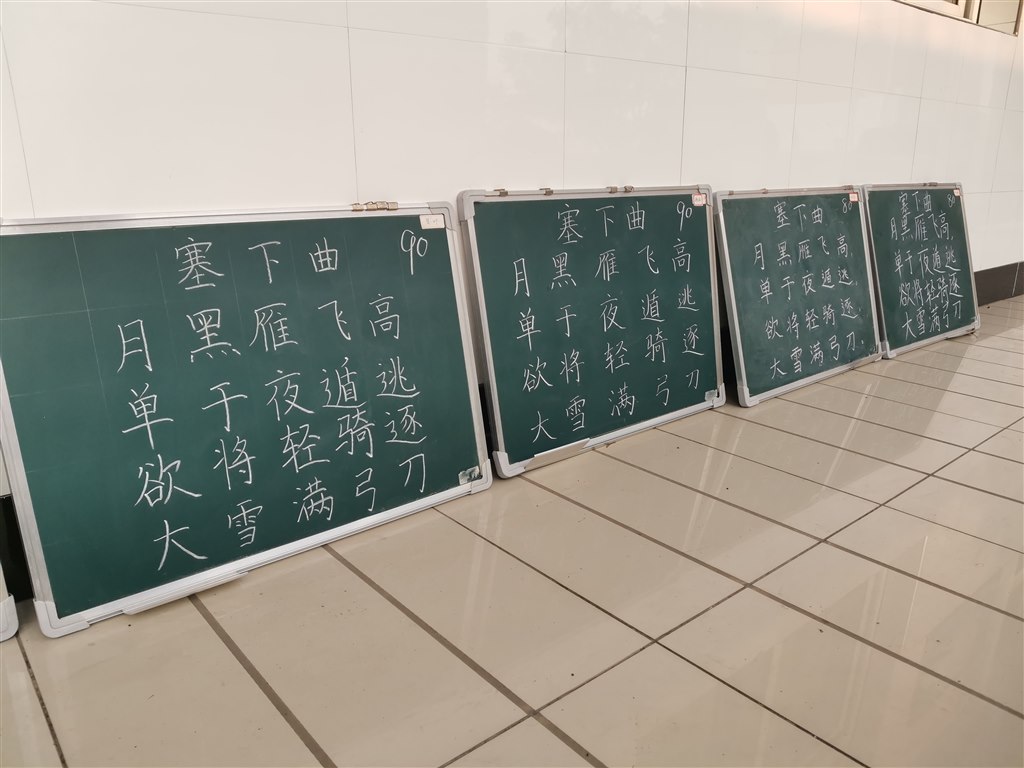 塞下曲 90
月黑雁飞高
单于夜遁逃
欲将轻骑逐
大雪满弓刀
塞下曲 90
月黑雁飞高
单于夜遁逃
欲将轻骑逐
大雪满弓刀
塞下曲
月黑雁飞高
单于夜遁逃
欲将轻骑逐
大雪满弓刀.
塞下曲
月黑雁飞高
单于夜遁逃
欲将轻骑逐
大雪满弓刀